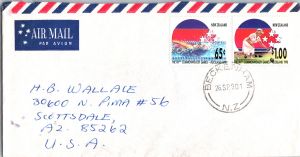 AIR MAIL
PAR AVION
NEW ZEALAND
65c
NEW ZEALAND
$1.00
BECKENHAM
26 SP 90 1
N.Z.
H.B. WALLACE
30600 N. PIMA #56
SCOTTSDALE,
AZ. 85262
U.S.A.